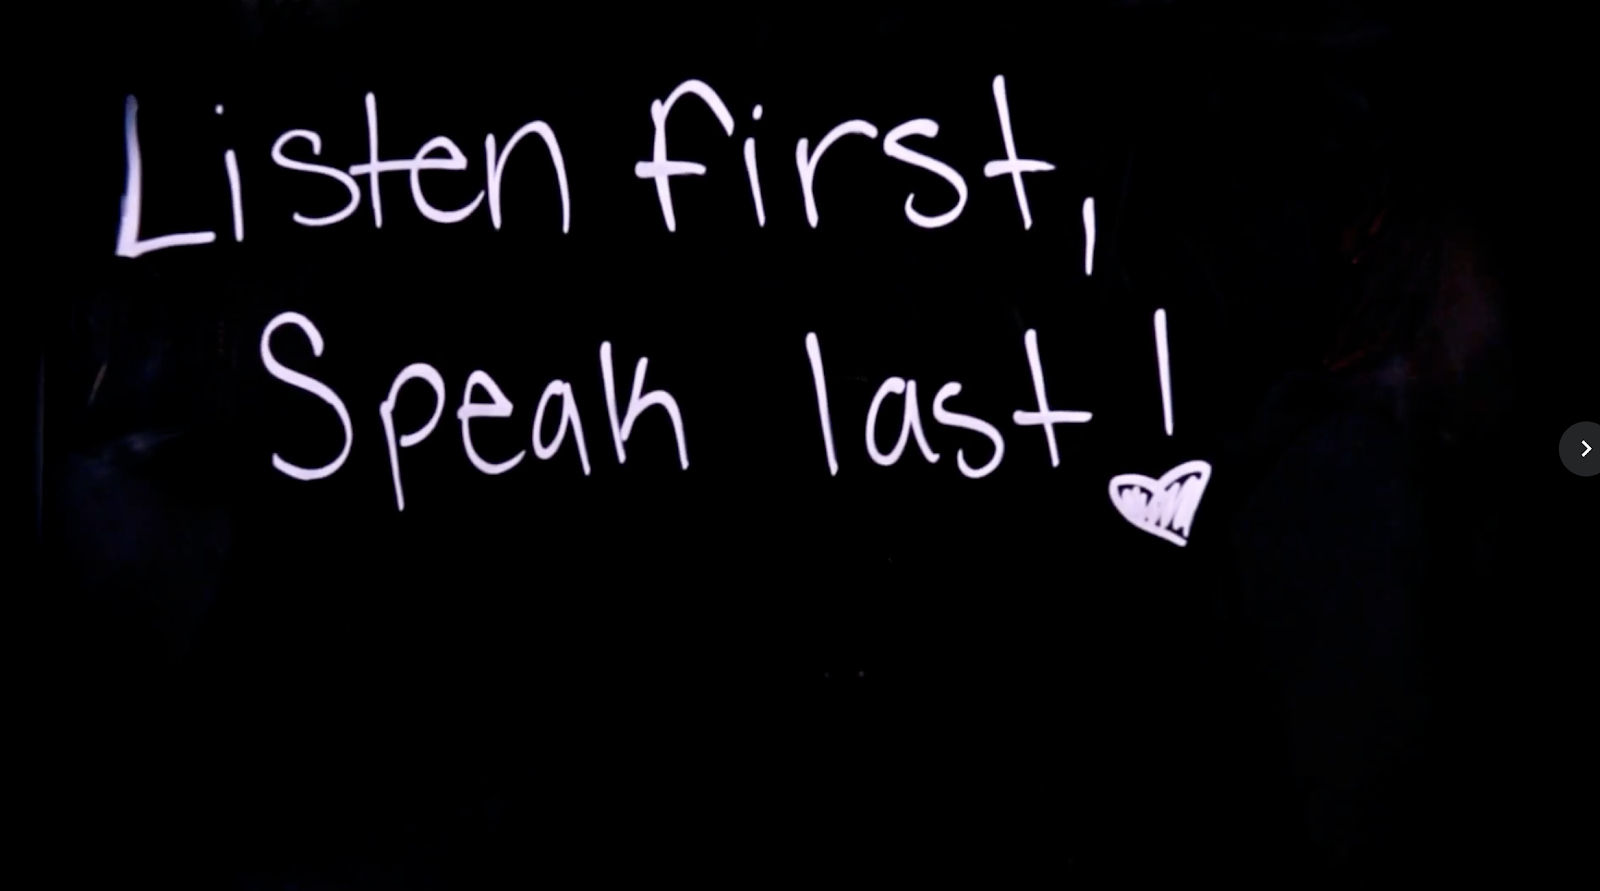 Listen first,
Speak last!